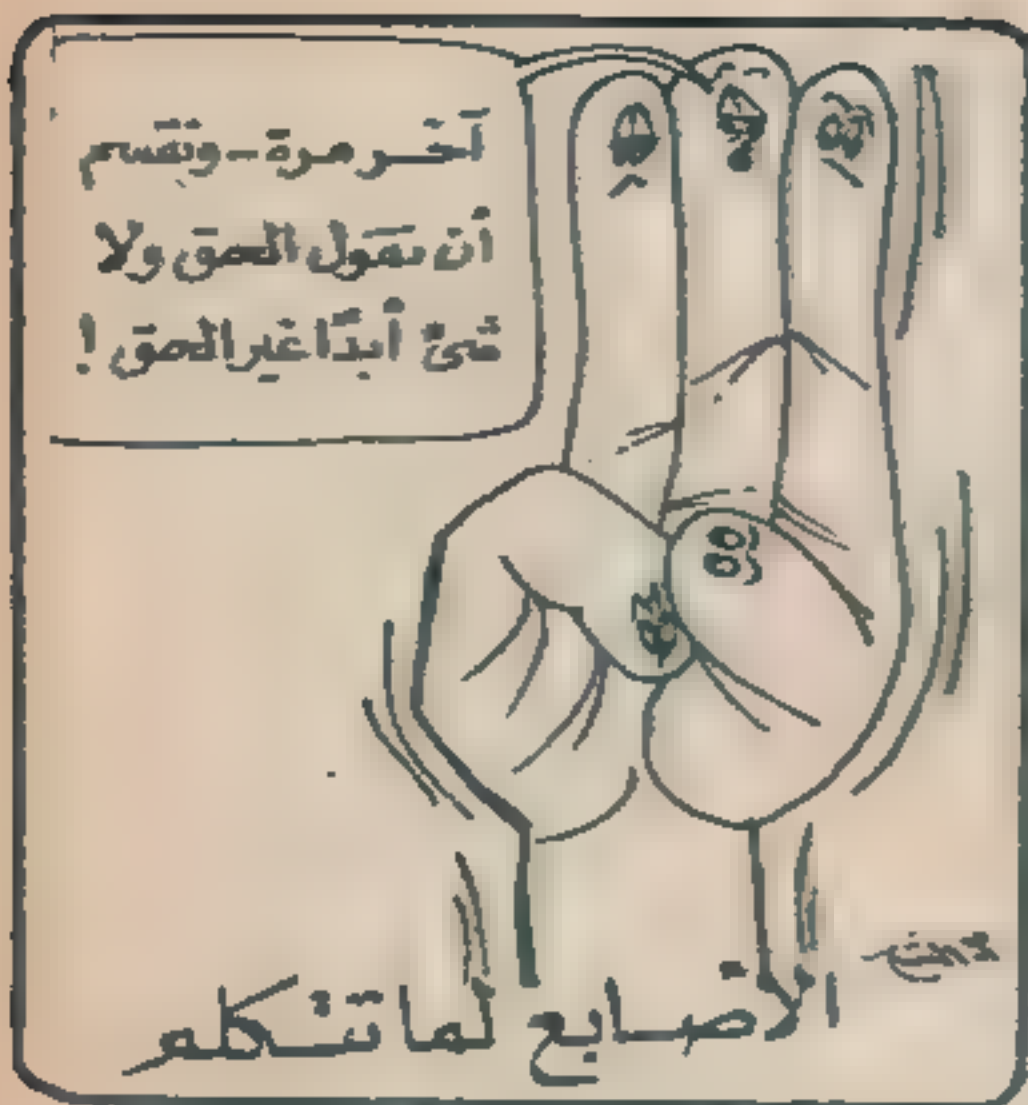 آخر مرة - ونقسم
أن نقول الحق ولا
شئ أبدًا غير الحق !
الأصابع لما تتكلم